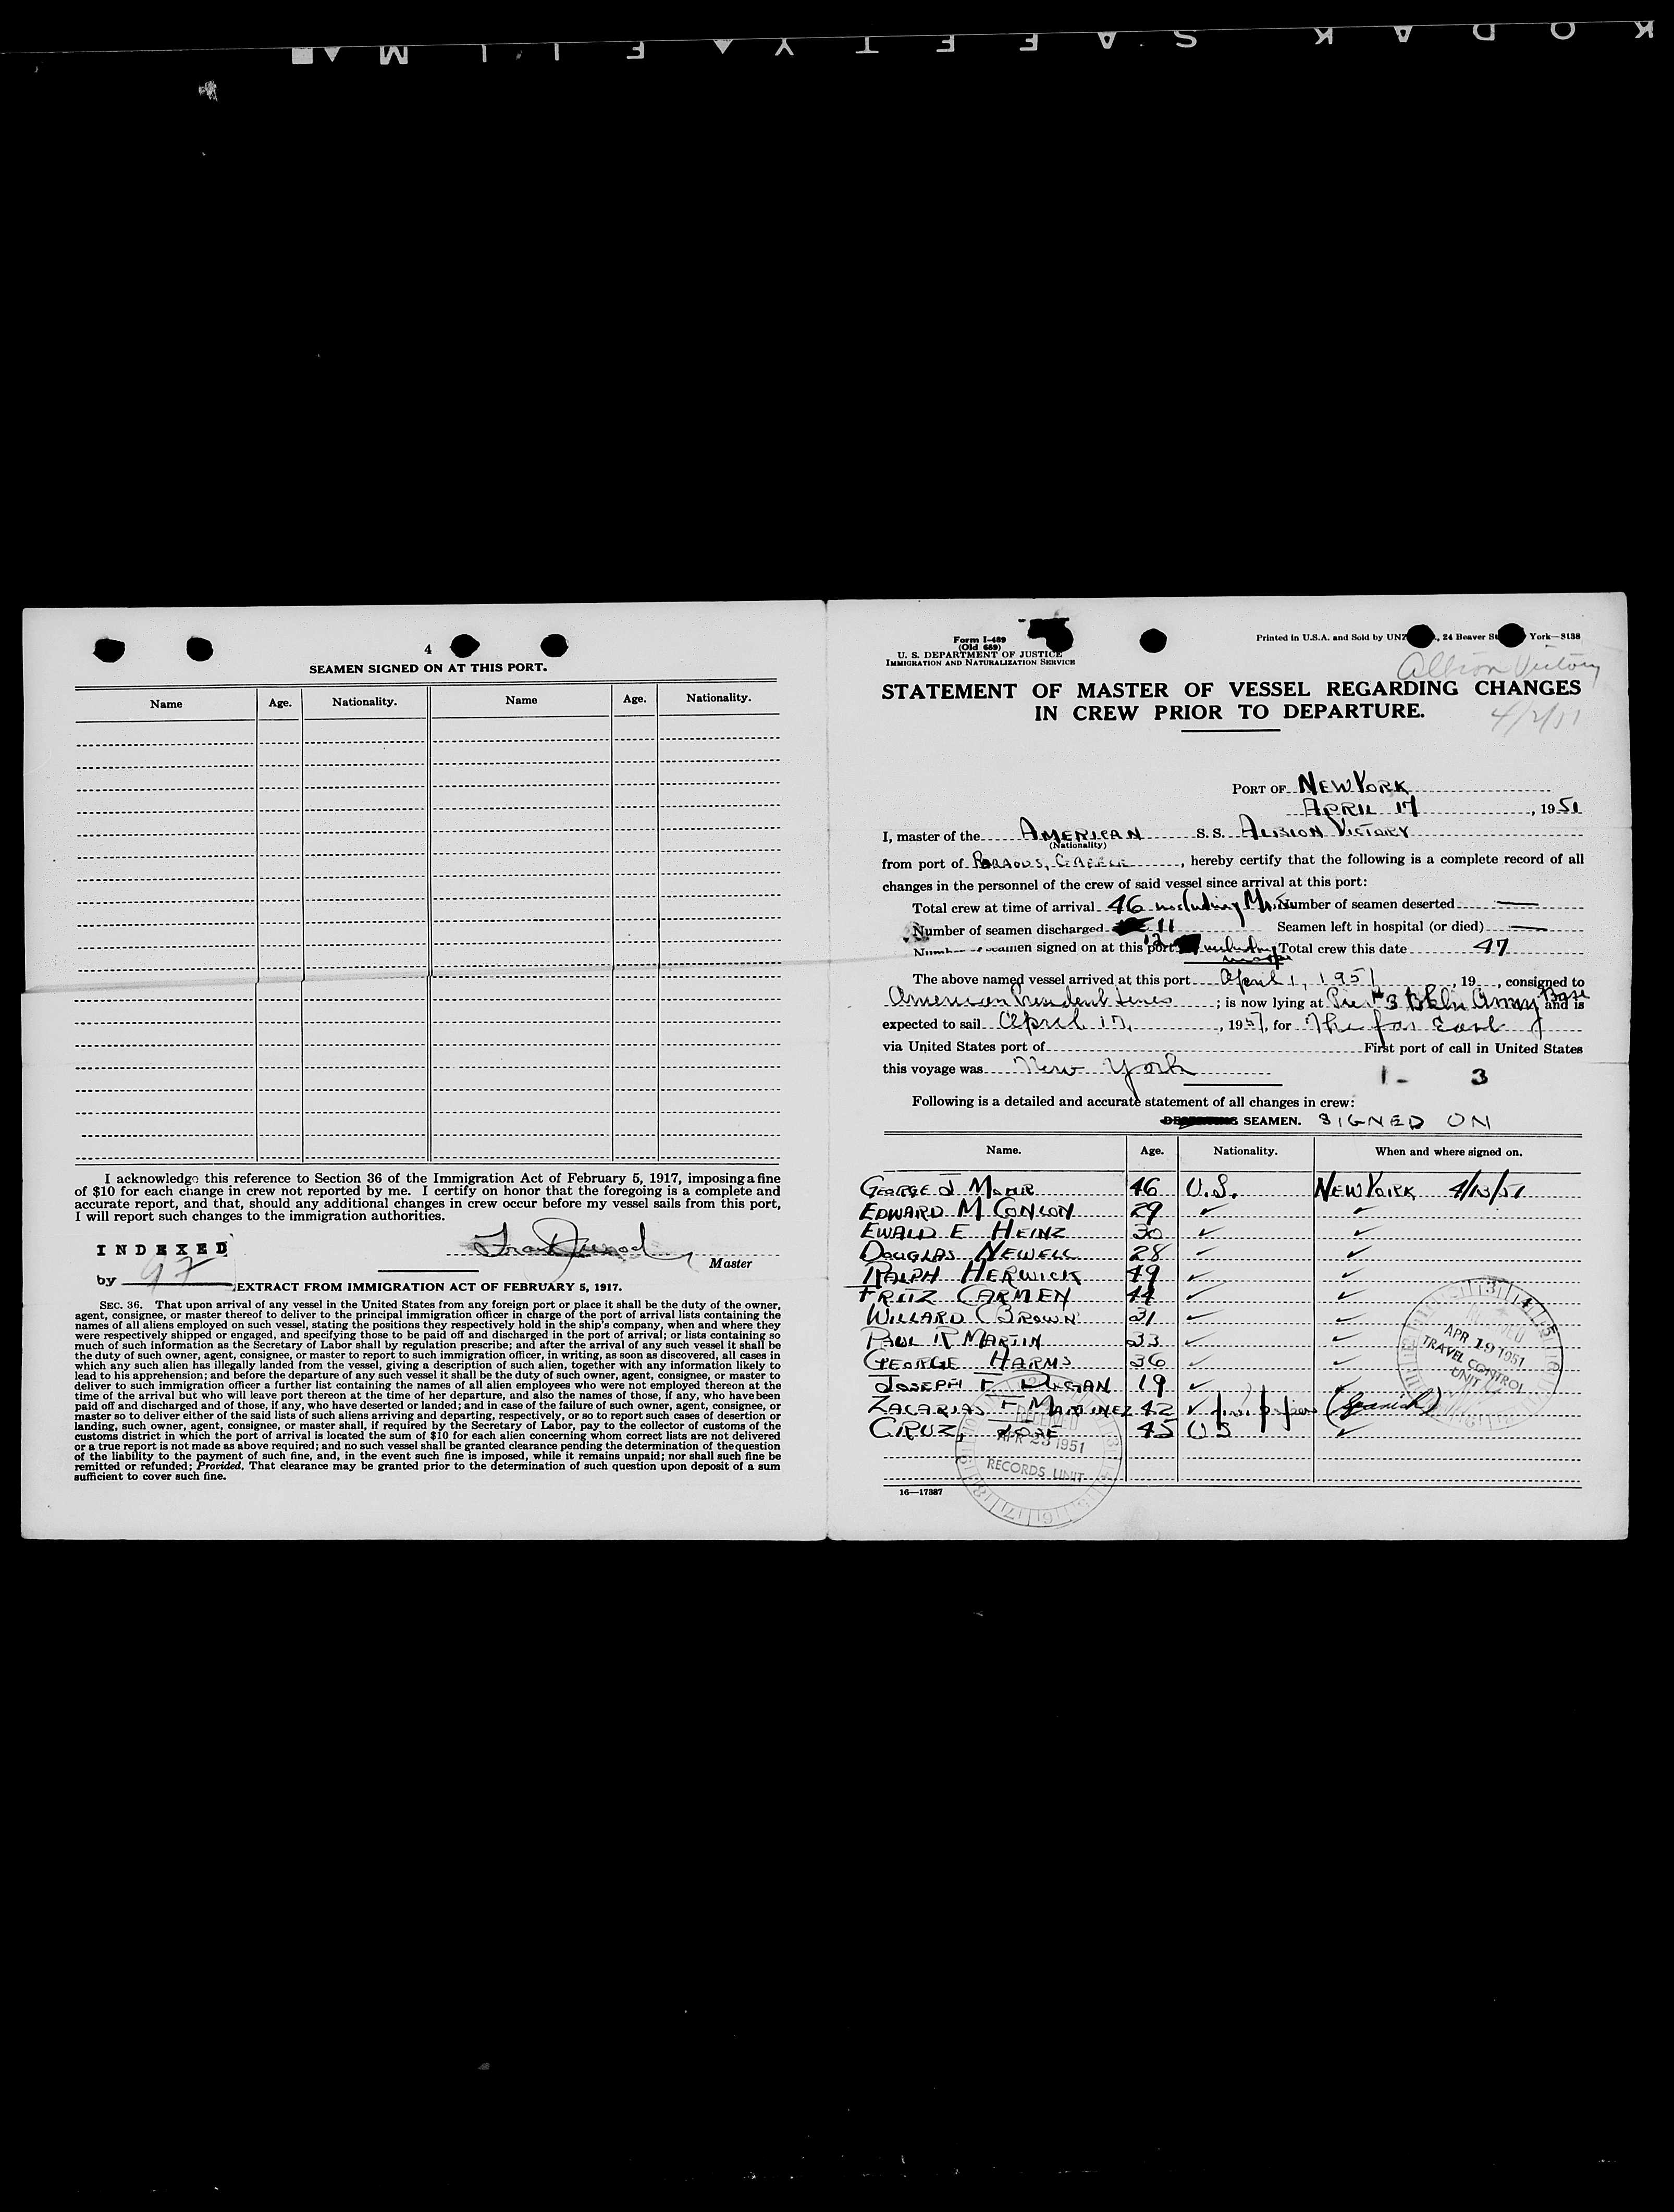 KODAK SAFETY FILM
4
SEAMEN SIGNED ON AT THIS PORT.
Name Age. Nationality. Name Age. Nationality.
I acknowledge this reference to Section 36 of the Immigration Act of February 5, 1917, imposing a fine
of $10 for each change in crew not reported by me. I certify on honor that the foregoing is a complete and
accurate report, and that, should any additional changes in crew occur before my vessel sails from this port,
I will report such changes to the immigration authorities.
INDEXED
Master
by 97
EXTRACT FROM IMMIGRATION ACT OF FEBRUARY 5, 1917.
SEC. 36. That upon arrival of any vessel in the United States from any foreign port or place it shall be the duty of the owner,
agent, consignee, or master thereof to deliver to the principal immigration officer in charge of the port of arrival lists containing the
names of all aliens employed on such vessel, stating the positions they respectively hold in the ship's company, when and where they
were respectively shipped or engaged, and specifying those to be paid off and discharged in the port of arrival; or lists containing so
much of such information as the Secretary of Labor shall by regulation prescribe; and after the arrival of any such vessel it shall be
the duty of such owner, agent, consignee, or master to report to such immigration officer, in writing, as soon as discovered, all cases in
which any such alien has illegally landed from the vessel, giving a description of such alien, together with any information likely to
lead to his apprehension; and before the departure of any such vessel it shall be the duty of such owner, agent, consignee, or master to
deliver to such immigration officer a further list containing the names of all alien employees who were not employed thereon at the
time of the arrival but who will leave port thereon at the time of her departure, and also the names of those, if any, who have been
paid off and discharged and of those, if any, who have deserted or landed; and in case of the failure of such owner, agent, consignee, or
master so to deliver either of the said lists of such aliens arriving and departing, respectively, or so to report such cases of desertion or
landing, such owner, agent, consignee, or master shall, if required by the Secretary of Labor, pay to the collector of customs of the
customs district in which the port of arrival is located the sum of $10 for each alien concerning whom correct lists are not delivered
or a true report is not made as above required; and no such vessel shall be granted clearance pending the determination of the question
of the liability to the payment of such fine, and, in the event such fine is imposed, while it remains unpaid; nor shall such fine be
remitted or refunded; Provided, That clearance may be granted prior to the determination of such question upon deposit of a sum
sufficient to cover such fine.
Form I-489
(Old 689)
U. S. DEPARTMENT OF JUSTICE
IMMIGRATION AND NATURALIZATION SERVICE
Printed in U.S.A. and Sold by UNZ 24 Beaver St York—3138
Albion Victory
STATEMENT OF MASTER OF VESSEL REGARDING CHANGES
IN CREW PRIOR TO DEPARTURE.
4/2/51
PORT OF NEW YORK
APRIL 17, 1951
I, master of the AMERICAN S. S. ALBION VICTORY
(Nationality)
from port of GREECE, hereby certify that the following is a complete record of all
changes in the personnel of the crew of said vessel since arrival at this port:
Total crew at time of arrival 46 including Number of seamen deserted —
Number of seamen discharged 11 Seamen left in hospital (or died) —
seamen signed on at this port 12 including Total crew this date 47
master
The above named vessel arrived at this port April 1, 1951, 19 , consigned to
American President Lines ; is now lying at Pier #3 Bkln Army Base and is
expected to sail April 17, 1951, for The far East
via United States port of First port of call in United States
this voyage was New York
1 - 3
Following is a detailed and accurate statement of all changes in crew:
SEAMEN. SIGNED ON
Name. Age. Nationality. When and where signed on.
GEORGE J 46 U.S. NEW YORK 4/13/51
EDWARD M CONLON 29 ✓ ✓
EWALD E HEINZ 30 ✓ ✓
DOUGLAS NEWELL 28 ✓ ✓
RALPH HERWICK 49 ✓ ✓
FRITZ CARMEN 44 ✓ ✓
WILLARD C BROWN 31 ✓ ✓
PAUL R MARTIN 33 ✓ ✓
GEORGE HARMS 36 ✓ ✓
JOSEPH F DUGAN 19 ✓ ✓
ZACARIAS F MARTINEZ 42 ✓ first papers (Spanish)
CRUZ, JOSE 45 US ✓
RECEIVED
APR 19 1951
TRAVEL CONTROL
UNIT
RECEIVED
APR 23 1951
RECORDS UNIT
16—17387